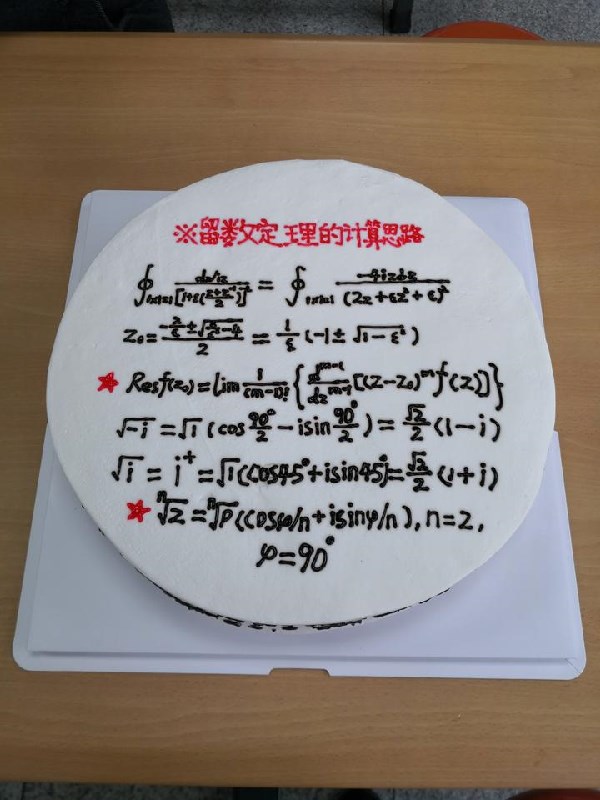 ※留数定理的计算思路
∮|z|=1 dz/iz / [1+ε(z+z⁻¹/2)]² = ∮|z|=1 -4izdz / (2z+εz²+ε)²
z₀ = (-2/ε ± √(4/ε²-4)) / 2 = 1/ε (-1 ± √1-ε²)
★ Resf(z₀) = lim 1/(m-1)! { d^(m-1)/dz^(m-1) [(z-z₀)^m f(z)] }
√-i = √1 (cos 90°/2 - isin 90°/2) = √2/2 (1-i)
√i = i⁺ = √1 (cos45°+isin45°) = √2/2 (1+i)
★ ⁿ√z = ⁿ√ρ (cosφ/n + isinφ/n), n=2,
φ=90°